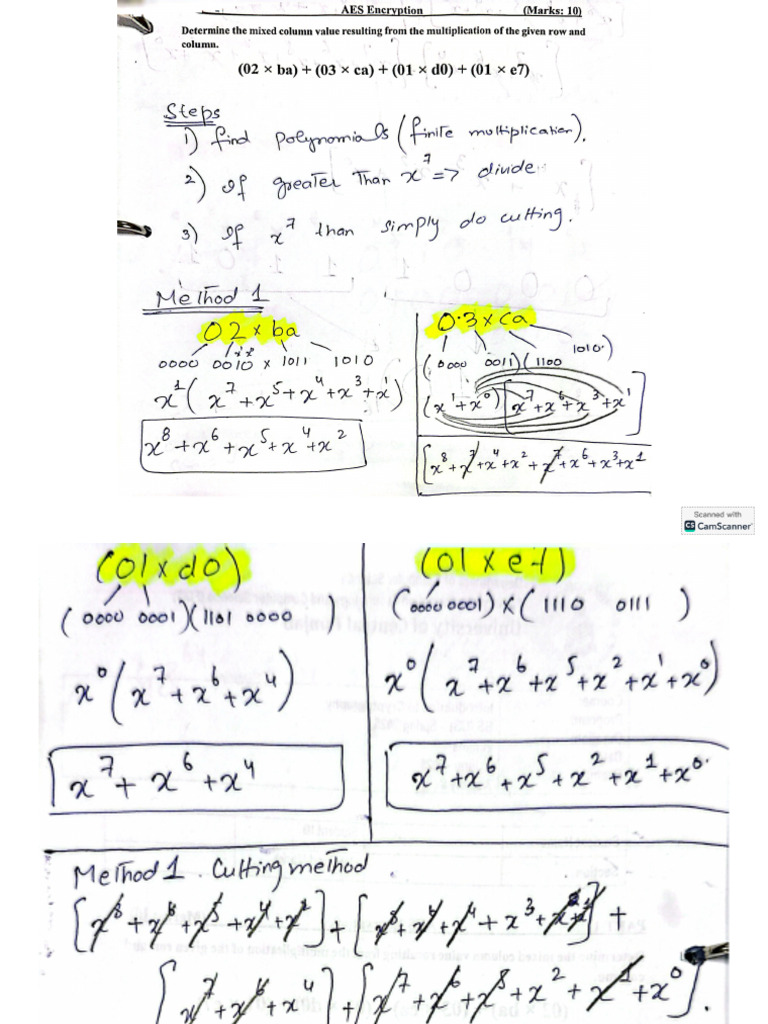 AES Encryption (Marks: 10)
Determine the mixed column value resulting from the multiplication of the given row and
column.
(02 × ba) + (03 × ca) + (01 × d0) + (01 × e7)
Steps
1) find polynomials (finite multiplication).
2) If greater than x⁷ => divide
3) If x⁷ than simply do cutting.
Method 1
02 x ba
0000 0010 x 1011 1010
x¹(x⁷+x⁵+x⁴+x³+x¹)
x⁸+x⁶+x⁵+x⁴+x²
0.3 x ca
(0000 0011)(1100 1010)
(x¹+x⁰)[x⁷+x⁶+x³+x¹]
[x⁸+x⁷+x⁴+x²+x⁷+x⁶+x³+x¹
Scanned with
CS CamScanner
(01 x d0)
(0000 0001)(1101 0000)
x⁰(x⁷+x⁶+x⁴)
x⁷+x⁶+x⁴
(01 x e7)
(0000 0001)x(1110 0111)
x⁰(x⁷+x⁶+x⁵+x²+x¹+x⁰)
x⁷+x⁶+x⁵+x²+x¹+x⁰
Method 1 Cutting method
[x⁸+x⁶+x⁵+x⁴+x²]+[x⁸+x⁴+x³+
[x⁷+x⁶+x⁴]+[x⁷+x⁶+x⁵+x²+x¹+x⁰].